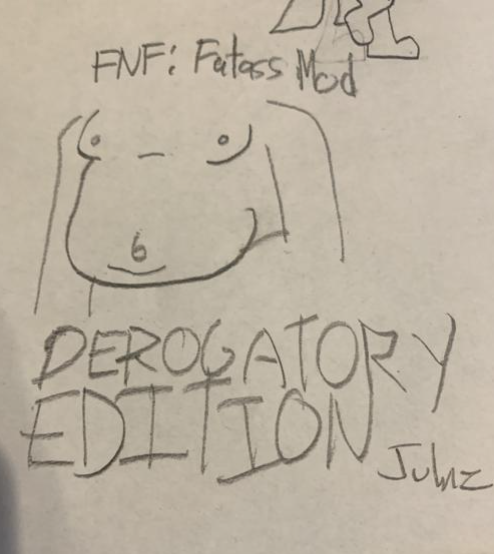 FNF: Fatass Mod
DEROGATORY
EDITION